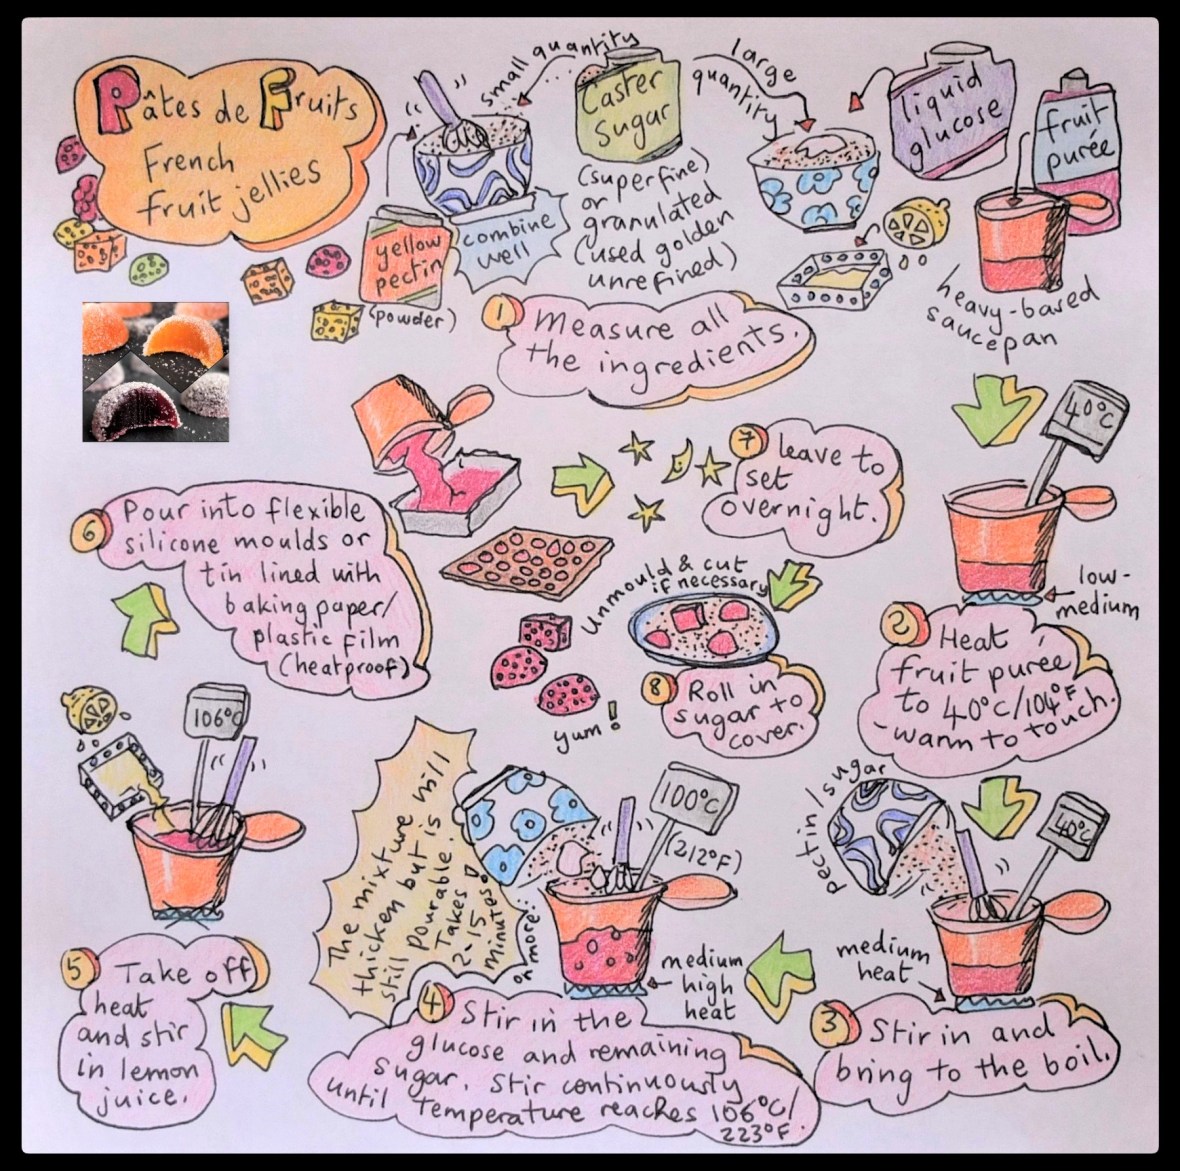 Pâtes de Fruits
French
fruit jellies
small quantity
Caster
Sugar
large
quantity
liquid
glucose
fruit
purée
yellow
pectin
(powder)
combine
well
(superfine)
or
granulated
(used golden
unrefined)
heavy-based
saucepan
1 Measure all
the ingredients.
40°C
low-
medium
2 Heat
fruit purée
to 40°C/104°F
-warm to touch.
pectin/sugar
40°C
medium
heat
3 Stir in and
bring to the boil.
100°C
(212°F)
medium
high
heat
The mixture will
thicken but is
still pourable.
Takes
2-15
minutes
or more.
4 Stir in the
glucose and remaining
sugar. Stir continuously
until temperature reaches 106°C/
223°F.
106°C
5 Take off
heat
and stir
in lemon
juice.
6 Pour into flexible
silicone moulds or
tin lined with
baking paper/
plastic film
(heatproof)
7 leave to
set
overnight.
Unmould & cut
if necessary
8 Roll in
sugar to
cover.
yum!